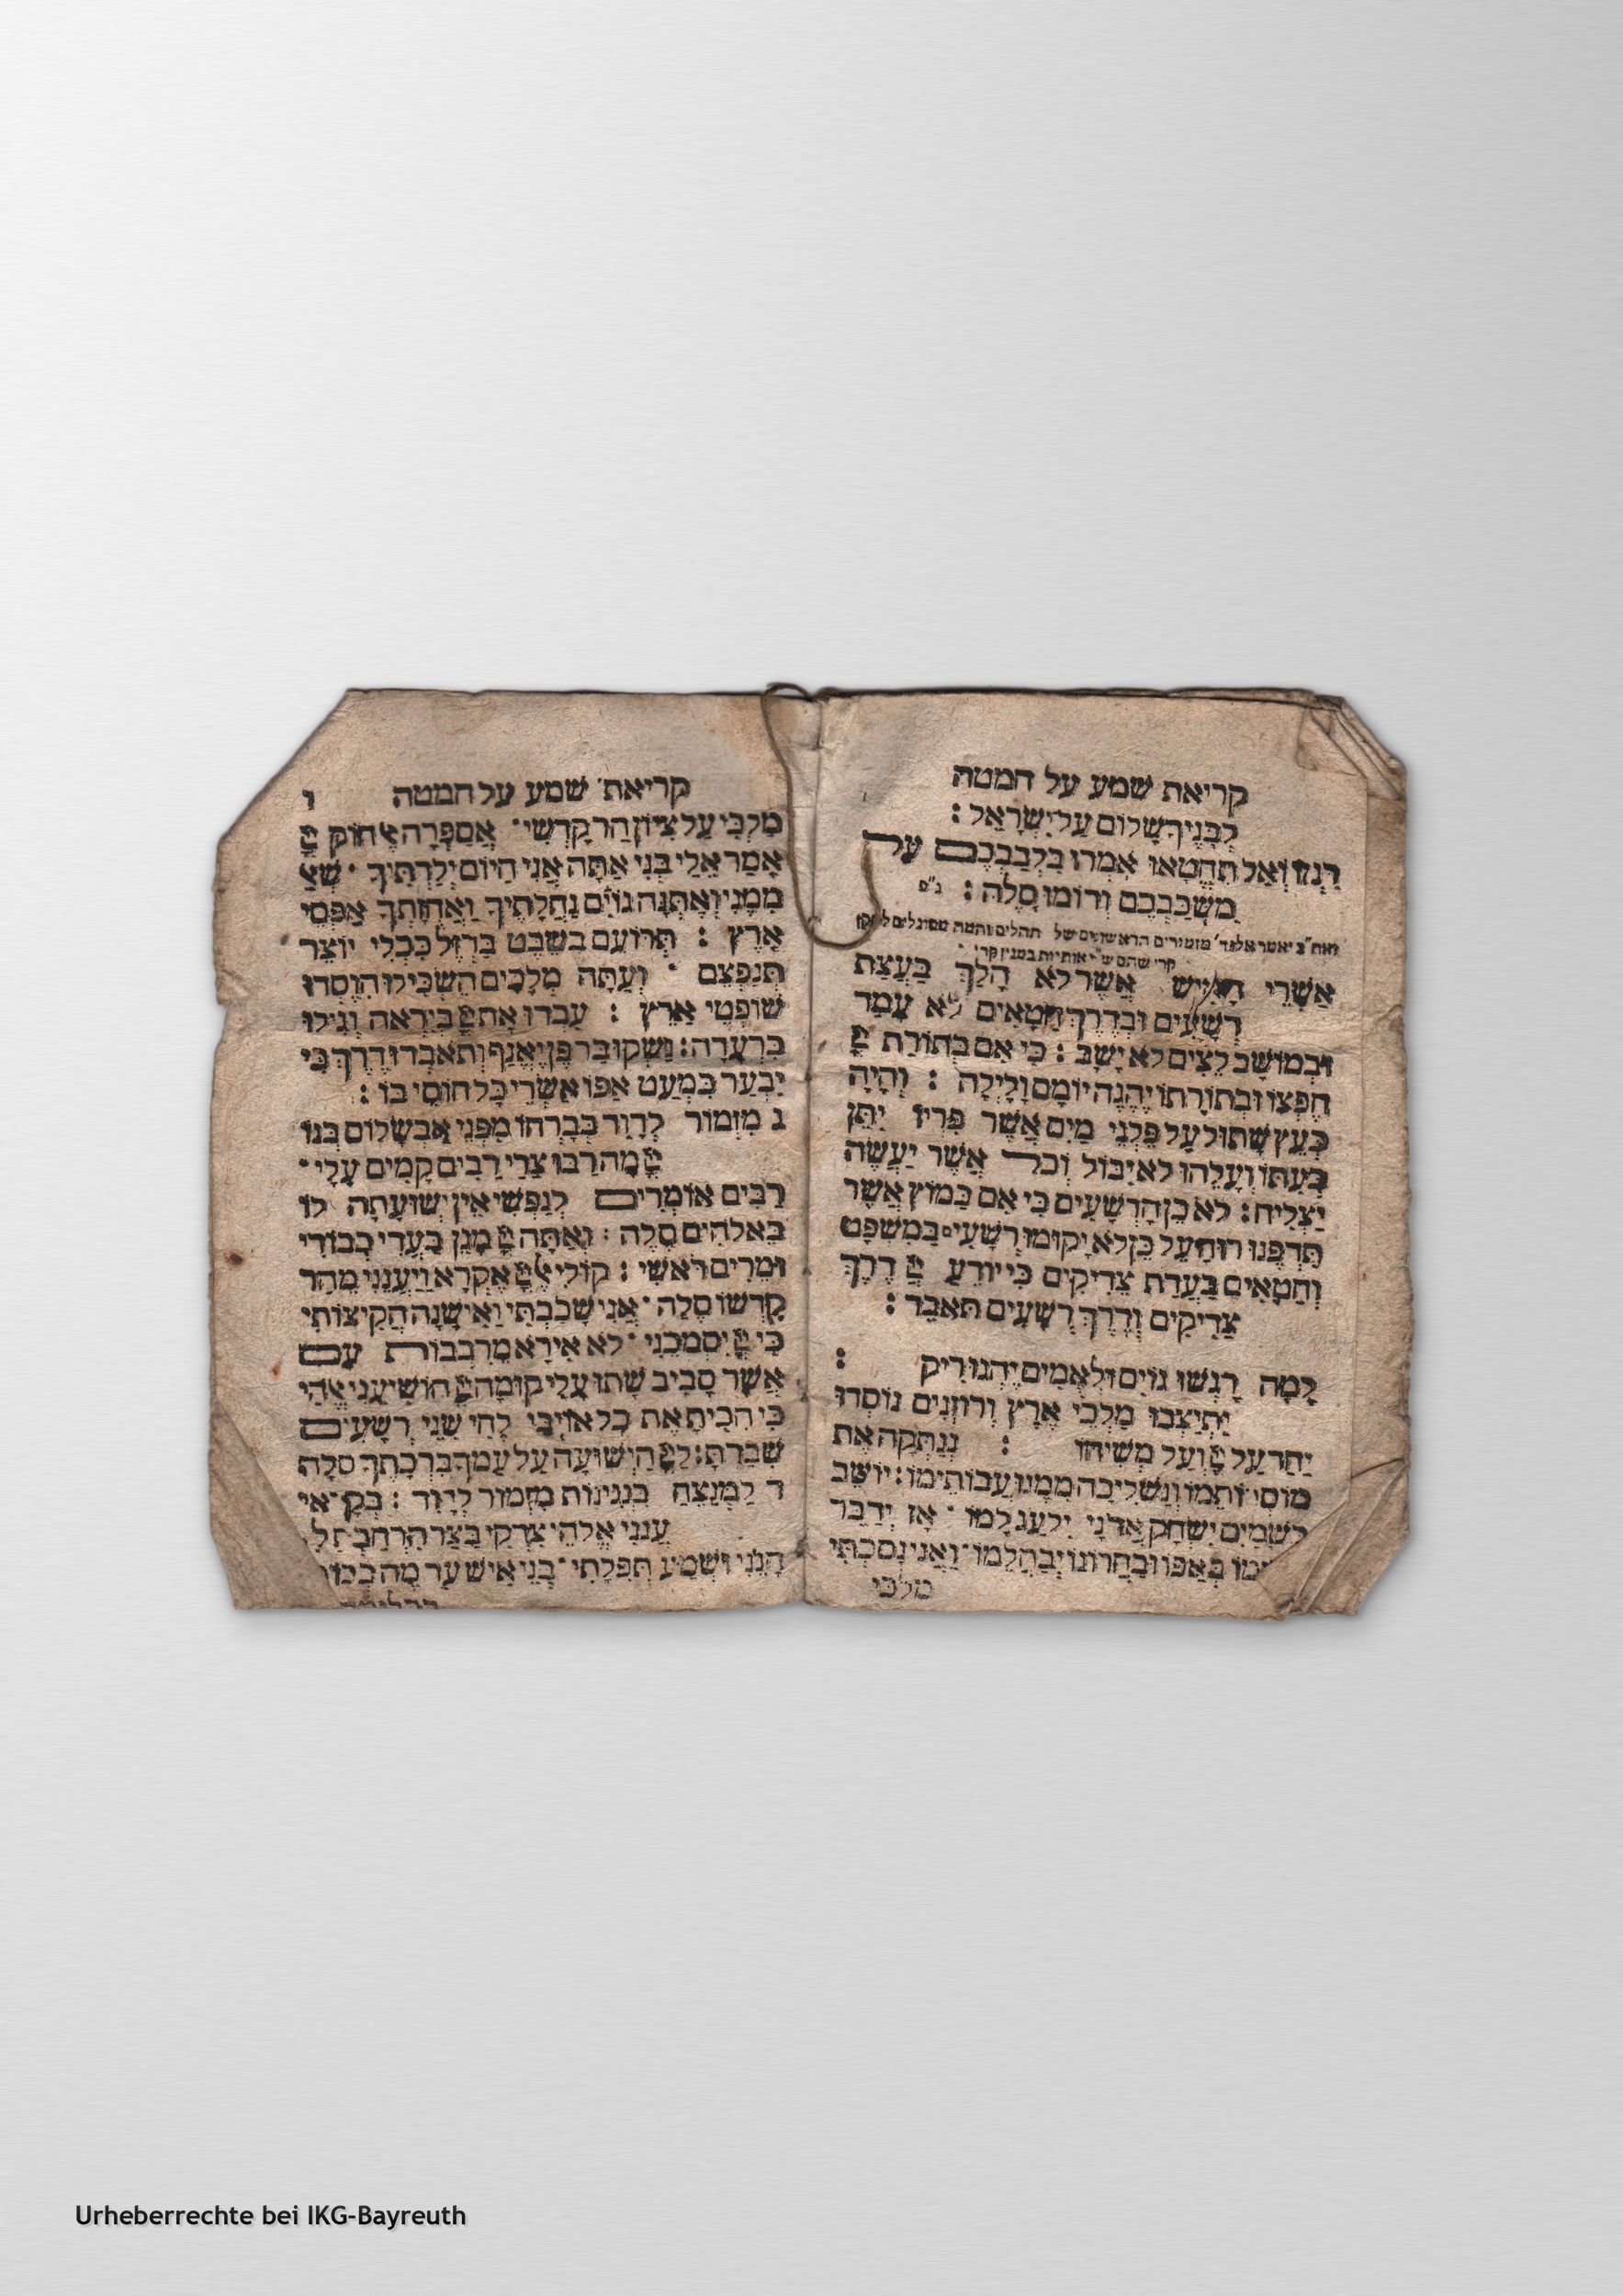 קריאת שמע על המטה
לְבָנֶיךָ שָׁלוֹם עַל יִשְׂרָאֵל :
רִגְזוּ וְאַל תֶּחֱטָאוּ אִמְרוּ בִלְבַבְכֶם עַל
מִשְׁכַּבְכֶם וְדוֹמּוּ סֶלָה : ג"פ
ואח"כ יאמר אלפד' מזמורים הראשונים של תהלים
קרי שהם ש"י אותיות במנין קרי
אַשְׁרֵי הָאִישׁ אֲשֶׁר לֹא הָלַךְ בַּעֲצַת
רְשָׁעִים וּבְדֶרֶךְ חַטָּאִים לֹא עָמָד
וּבְמוֹשַׁב לֵצִים לֹא יָשָׁב : כִּי אִם בְּתוֹרַת יְיָ
חֶפְצוֹ וּבְתוֹרָתוֹ יֶהְגֶּה יוֹמָם וָלָיְלָה : וְהָיָה
כְּעֵץ שָׁתוּל עַל פַּלְגֵי מַיִם אֲשֶׁר פִּרְיוֹ יִתֵּן
בְּעִתּוֹ וְעָלֵהוּ לֹא יִבּוֹל וְכֹל אֲשֶׁר יַעֲשֶׂה
יַצְלִיחַ : לֹא כֵן הָרְשָׁעִים כִּי אִם כַּמּוֹץ אֲשֶׁר
תִּדְּפֶנּוּ רוּחַ עַל כֵּן לֹא יָקוּמוּ רְשָׁעִים בַּמִּשְׁפָּט
וְחַטָּאִים בַּעֲדַת צַדִּיקִים כִּי יוֹדֵעַ יְיָ דֶּרֶךְ
צַדִּיקִים וְדֶרֶךְ רְשָׁעִים תֹּאבֵד :
לָמָּה רָגְשׁוּ גוֹיִם וּלְאֻמִּים יֶהְגּוּ רִיק :
יִתְיַצְּבוּ מַלְכֵי אֶרֶץ וְרוֹזְנִים נוֹסְדוּ
יַחַד עַל יְיָ וְעַל מְשִׁיחוֹ : נְנַתְּקָה אֶת
מוֹסְרוֹתֵמוֹ וְנַשְׁלִיכָה מִמֶּנּוּ עֲבוֹתֵימוֹ : יוֹשֵׁב
בַּשָּׁמַיִם יִשְׂחָק אֲדֹנָי יִלְעַג לָמוֹ · אָז יְדַבֵּר
בְּאַפּוֹ וּבַחֲרוֹנוֹ יְבַהֲלֵמוֹ · וַאֲנִי נָסַכְתִּי
מלכי
קריאת שמע על המטה ו
מַלְכִּי עַל צִיּוֹן הַר קָדְשִׁי · אֲסַפְּרָה אֶל חוֹק יְיָ
אָמַר אֵלַי בְּנִי אַתָּה אֲנִי הַיּוֹם יְלִדְתִּיךָ · שְׁאַל
מִמֶּנִּי וְאֶתְּנָה גוֹיִם נַחֲלָתֶיךָ וַאֲחֻזָּתְךָ אַפְסֵי
אָרֶץ : תְּרוֹעֵם בְּשֵׁבֶט בַּרְזֶל כִּכְלִי יוֹצֵר
תְּנַפְּצֵם · וְעַתָּה מְלָכִים הַשְׂכִּילוּ הִוָּסְרוּ
שׁוֹפְטֵי אָרֶץ : עִבְדוּ אֶת יְיָ בְּיִרְאָה וְגִילוּ
בִּרְעָדָה : נַשְּׁקוּ בַר פֶּן יֶאֱנַף וְתֹאבְדוּ דֶרֶךְ כִּי
יִבְעַר כִּמְעַט אַפּוֹ אַשְׁרֵי כָּל חוֹסֵי בוֹ :
ג מִזְמוֹר לְדָוִד בְּבָרְחוֹ מִפְּנֵי אַבְשָׁלוֹם בְּנוֹ
יְיָ מָה רַבּוּ צָרַי רַבִּים קָמִים עָלָי ·
רַבִּים אוֹמְרִים לְנַפְשִׁי אֵין יְשׁוּעָתָה לוֹ
בֵאלֹהִים סֶלָה · וְאַתָּה יְיָ מָגֵן בַּעֲדִי כְּבוֹדִי
וּמֵרִים רֹאשִׁי : קוֹלִי אֶל יְיָ אֶקְרָא וַיַּעֲנֵנִי מֵהַר
קָדְשׁוֹ סֶלָה · אֲנִי שָׁכַבְתִּי וָאִישָׁנָה הֱקִיצוֹתִי
כִּי יְיָ יִסְמְכֵנִי · לֹא אִירָא מֵרִבְבוֹת עָם
אֲשֶׁר סָבִיב שָׁתוּ עָלָי קוּמָה יְיָ הוֹשִׁיעֵנִי אֱלֹהַי
כִּי הִכִּיתָ אֶת כָּל אוֹיְבַי לֶחִי שִׁנֵּי רְשָׁעִים
שִׁבַּרְתָּ : לַיְיָ הַיְשׁוּעָה עַל עַמְּךָ בִרְכָתֶךָ סֶלָה
ד לַמְנַצֵּחַ בִּנְגִינוֹת מִזְמוֹר לְדָוִד : בְּקָרְאִי
עֲנֵנִי אֱלֹהֵי צִדְקִי בַּצָּר הִרְחַבְתָּ לִּי
חָנֵּנִי וּשְׁמַע תְּפִלָּתִי · בְּנֵי אִישׁ עַד מֶה כְבוֹדִי
Urheberrechte bei IKG-Bayreuth